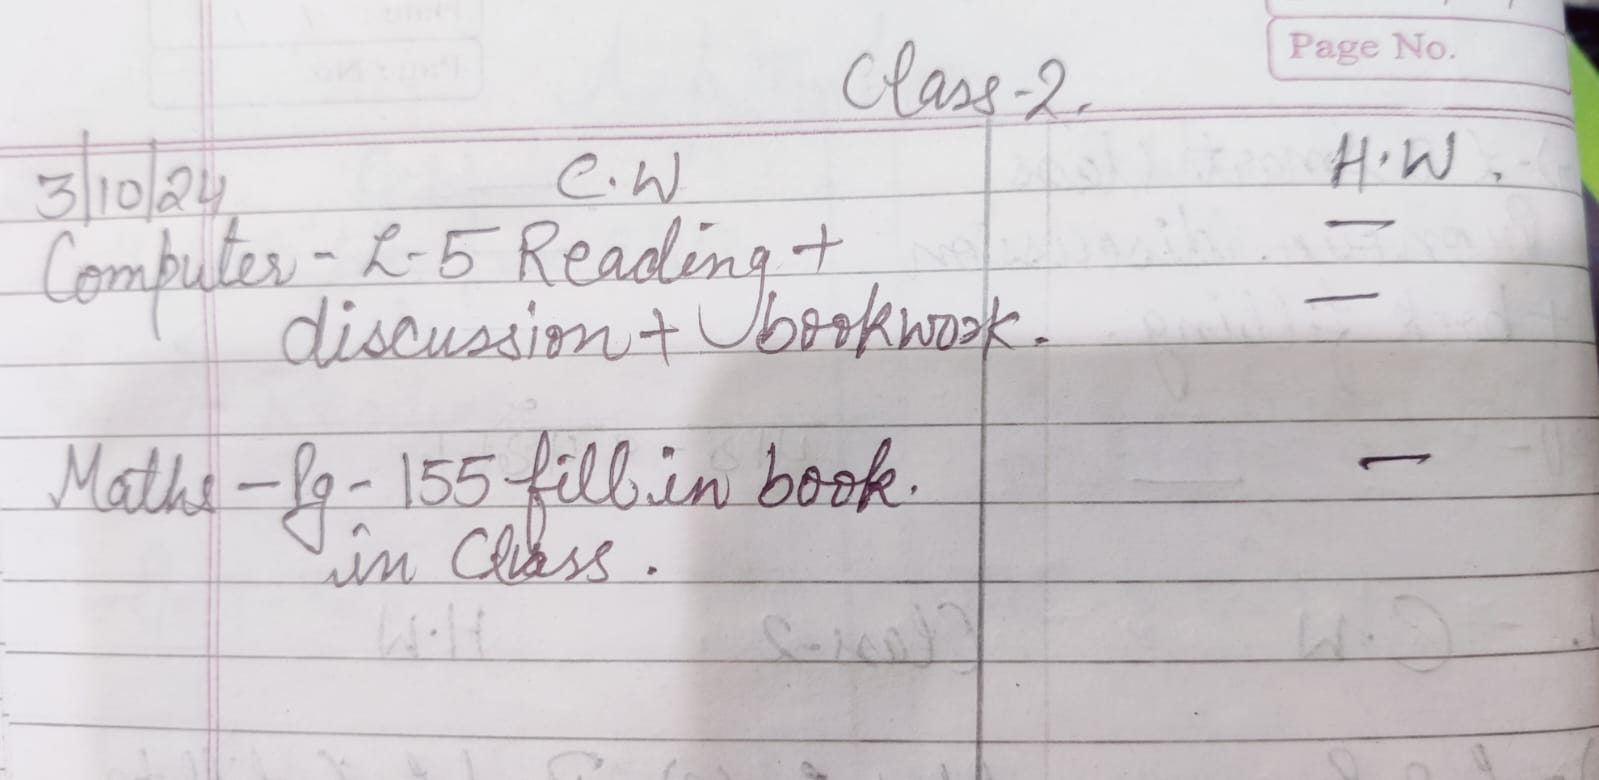 Page No.
Class-2.
3/10/24 C.W H.W.
Computer - L-5 Reading + —
discussion + bookwork. —
Maths - Pg - 155 fill in book. —
in Class.
H.W Class-2 C.W